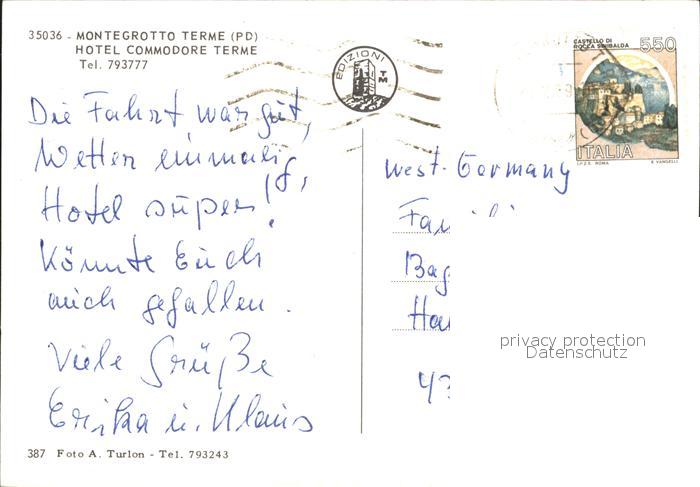 35036 - MONTEGROTTO TERME (PD)
HOTEL COMMODORE TERME
Tel. 793777
EDIZIONI
TM
CASTELLO DI
ROCCA SINIBALDA
550
ITALIA
I.P.Z.S. ROMA
E. VANGELLI
Die Fahrt war gut,
Wetter einmalig,
Hotel super!
Könnte Euch
auch gefallen.
Viele Grüße
Erika u. Klaus
West-Germany
Fa
Bag
Ha
43
privacy protection
Datenschutz
387 Foto A. Turlon - Tel. 793243